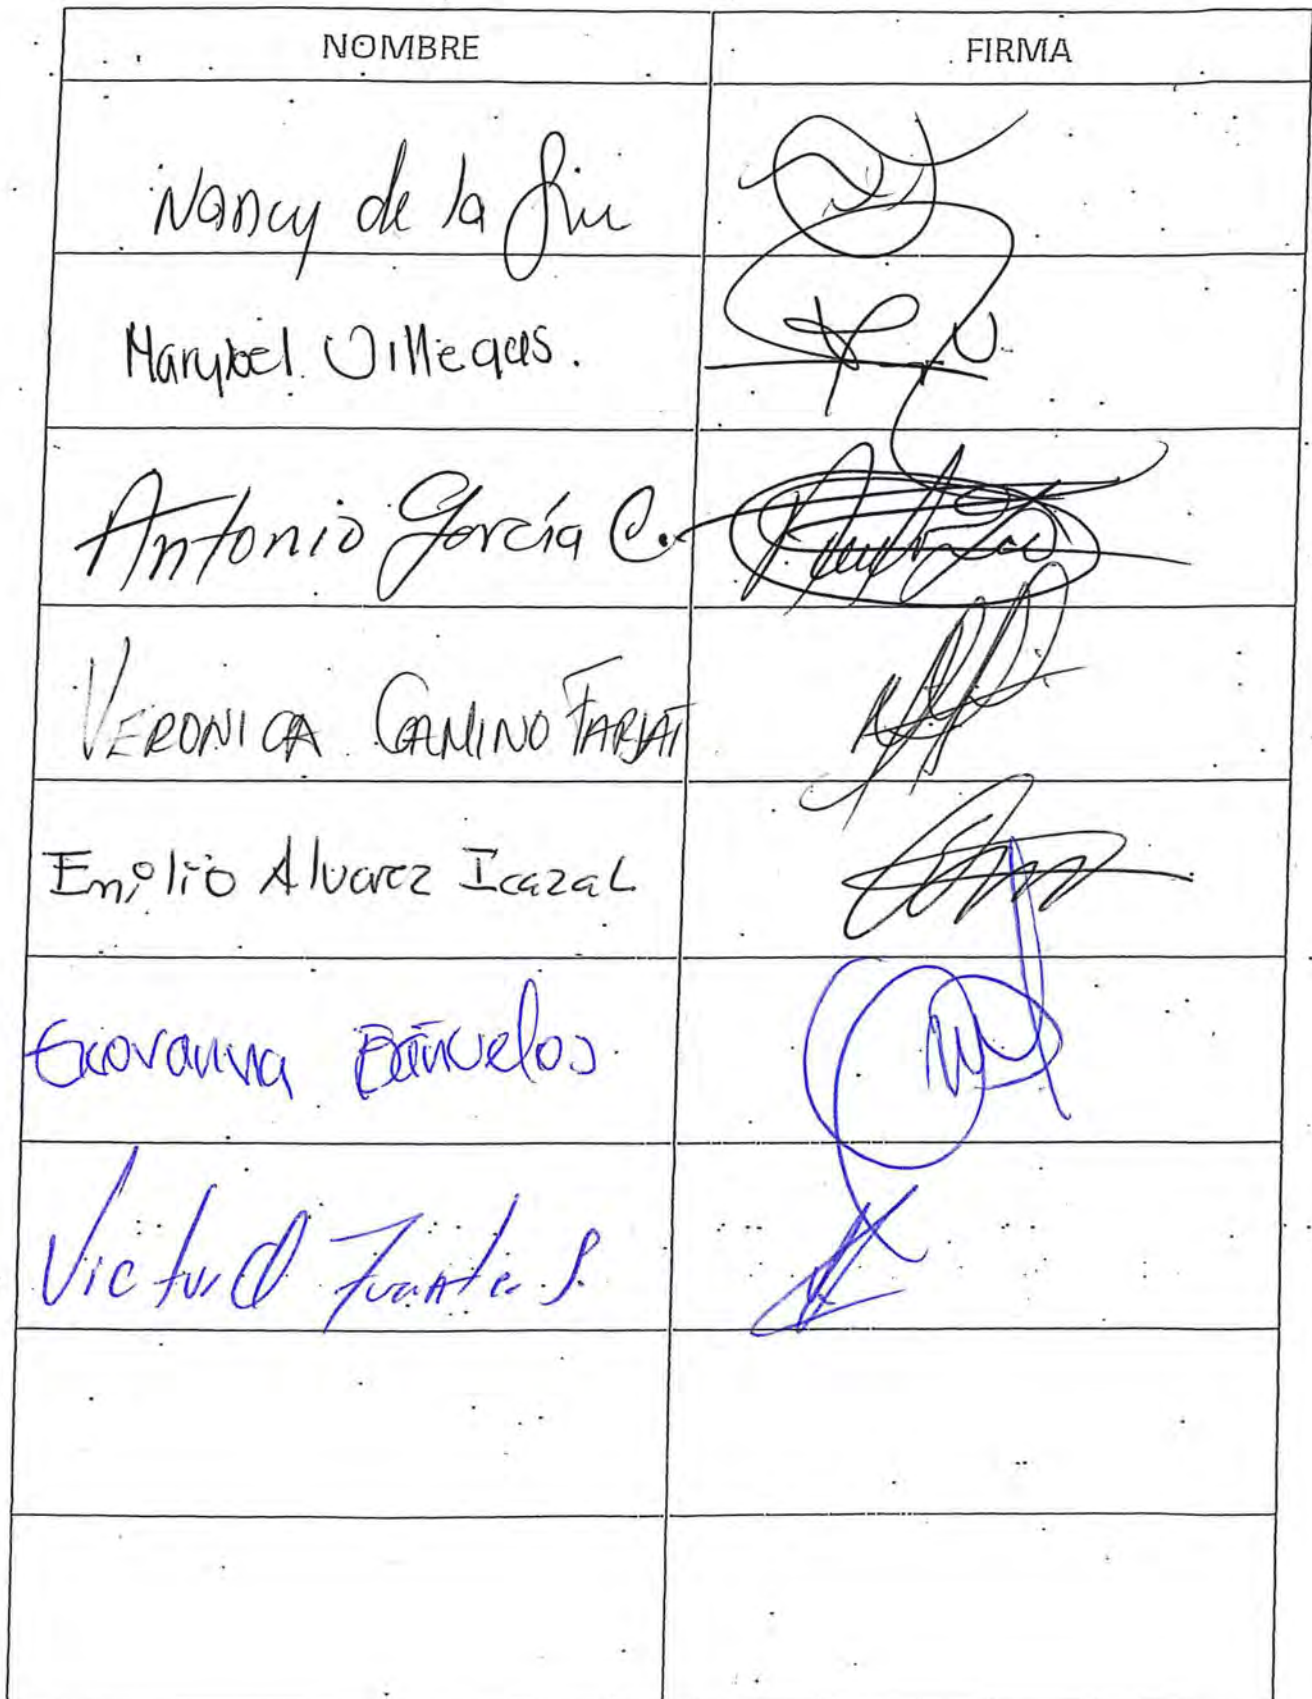 NOMBRE FIRMA
Nancy de la
Marybel Villegas.
Antonio García C.
VERONICA CAMINO FARJAT
Emilio Alvarez Icaza L
Geovanna Bañuelos
Victor Fuentes S.